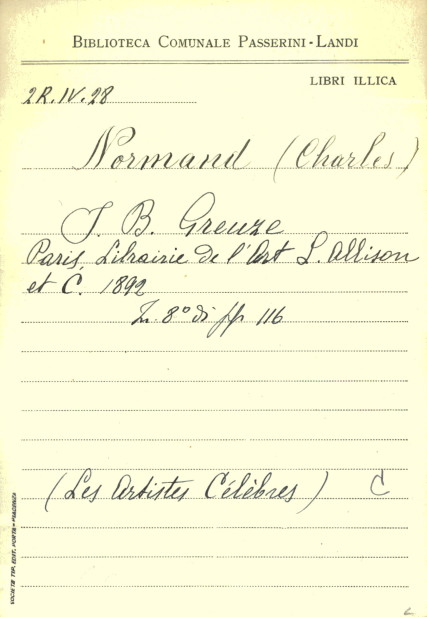 BIBLIOTECA COMUNALE PASSERINI-LANDI
LIBRI ILLICA
2R.IV.28
Normand (Charles)
J. B. Greuze
Paris, Librairie de l'Art L. Allison
et C. 1892
In 8° di pp 116
(Les Artistes Célèbres) C
SOCIETÀ TIP. EDIT. PORTA-PIACENZA